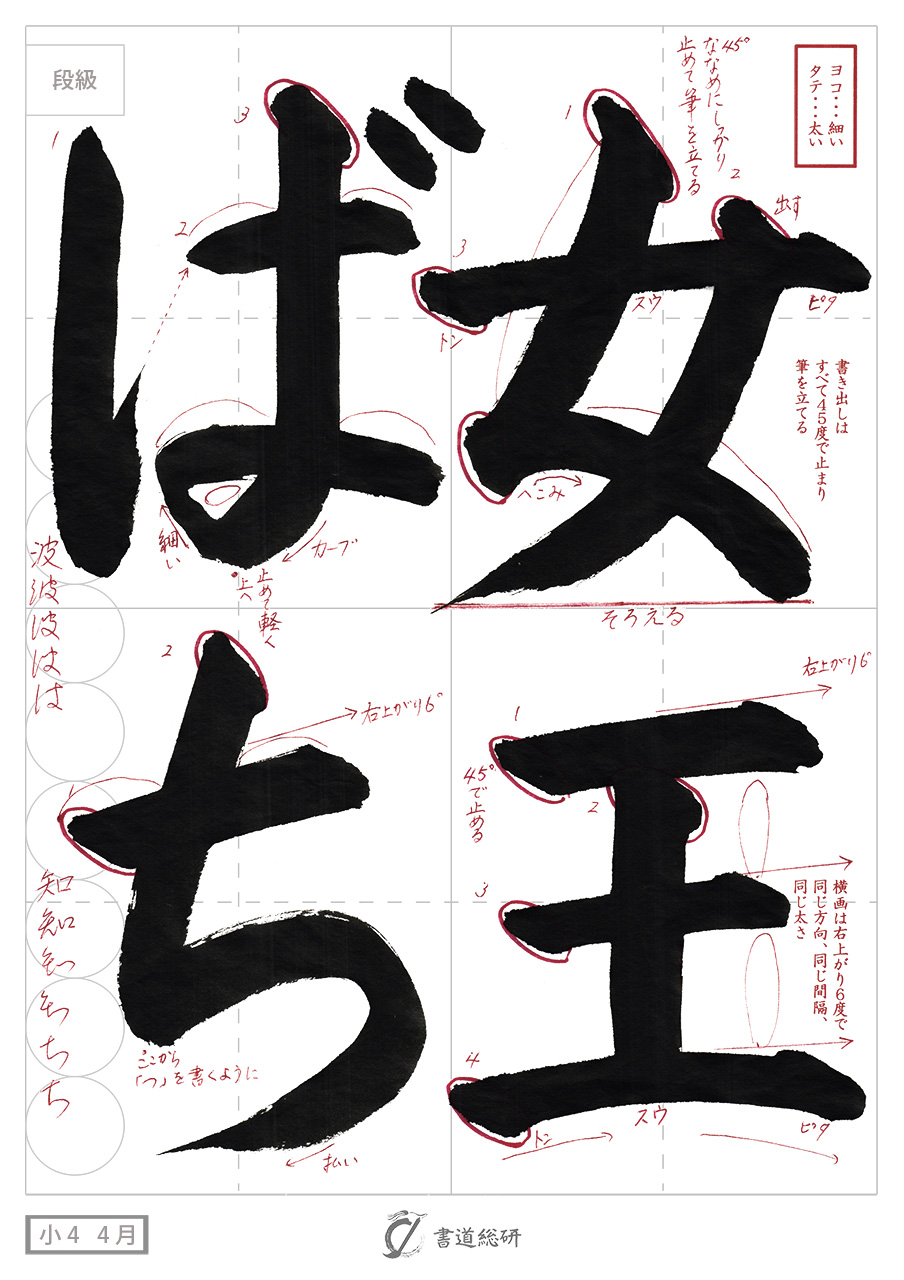 女王
ばち
段級
ヨコ・・・細い
タテ・・・太い
45°
ななめにしっかり
止めて筆を立てる
1
2
出す
3
トン
スウ
ピタ
書き出しは
すべて45度で止まり
筆を立てる
へこみ
そろえる
右上がり6°
1
45°で止める
2
3
横画は右上がり6度で
同じ方向、同じ間隔、
同じ太さ
4
トン
スウ
ピタ
1
2
3
細い
カーブ
止めて軽く
上へ
1
2
右上がり6°
ここから
「つ」を書くように
払い
波
波
波
は
は
知
知
ち
ち
ち
小4 4月
書道総研